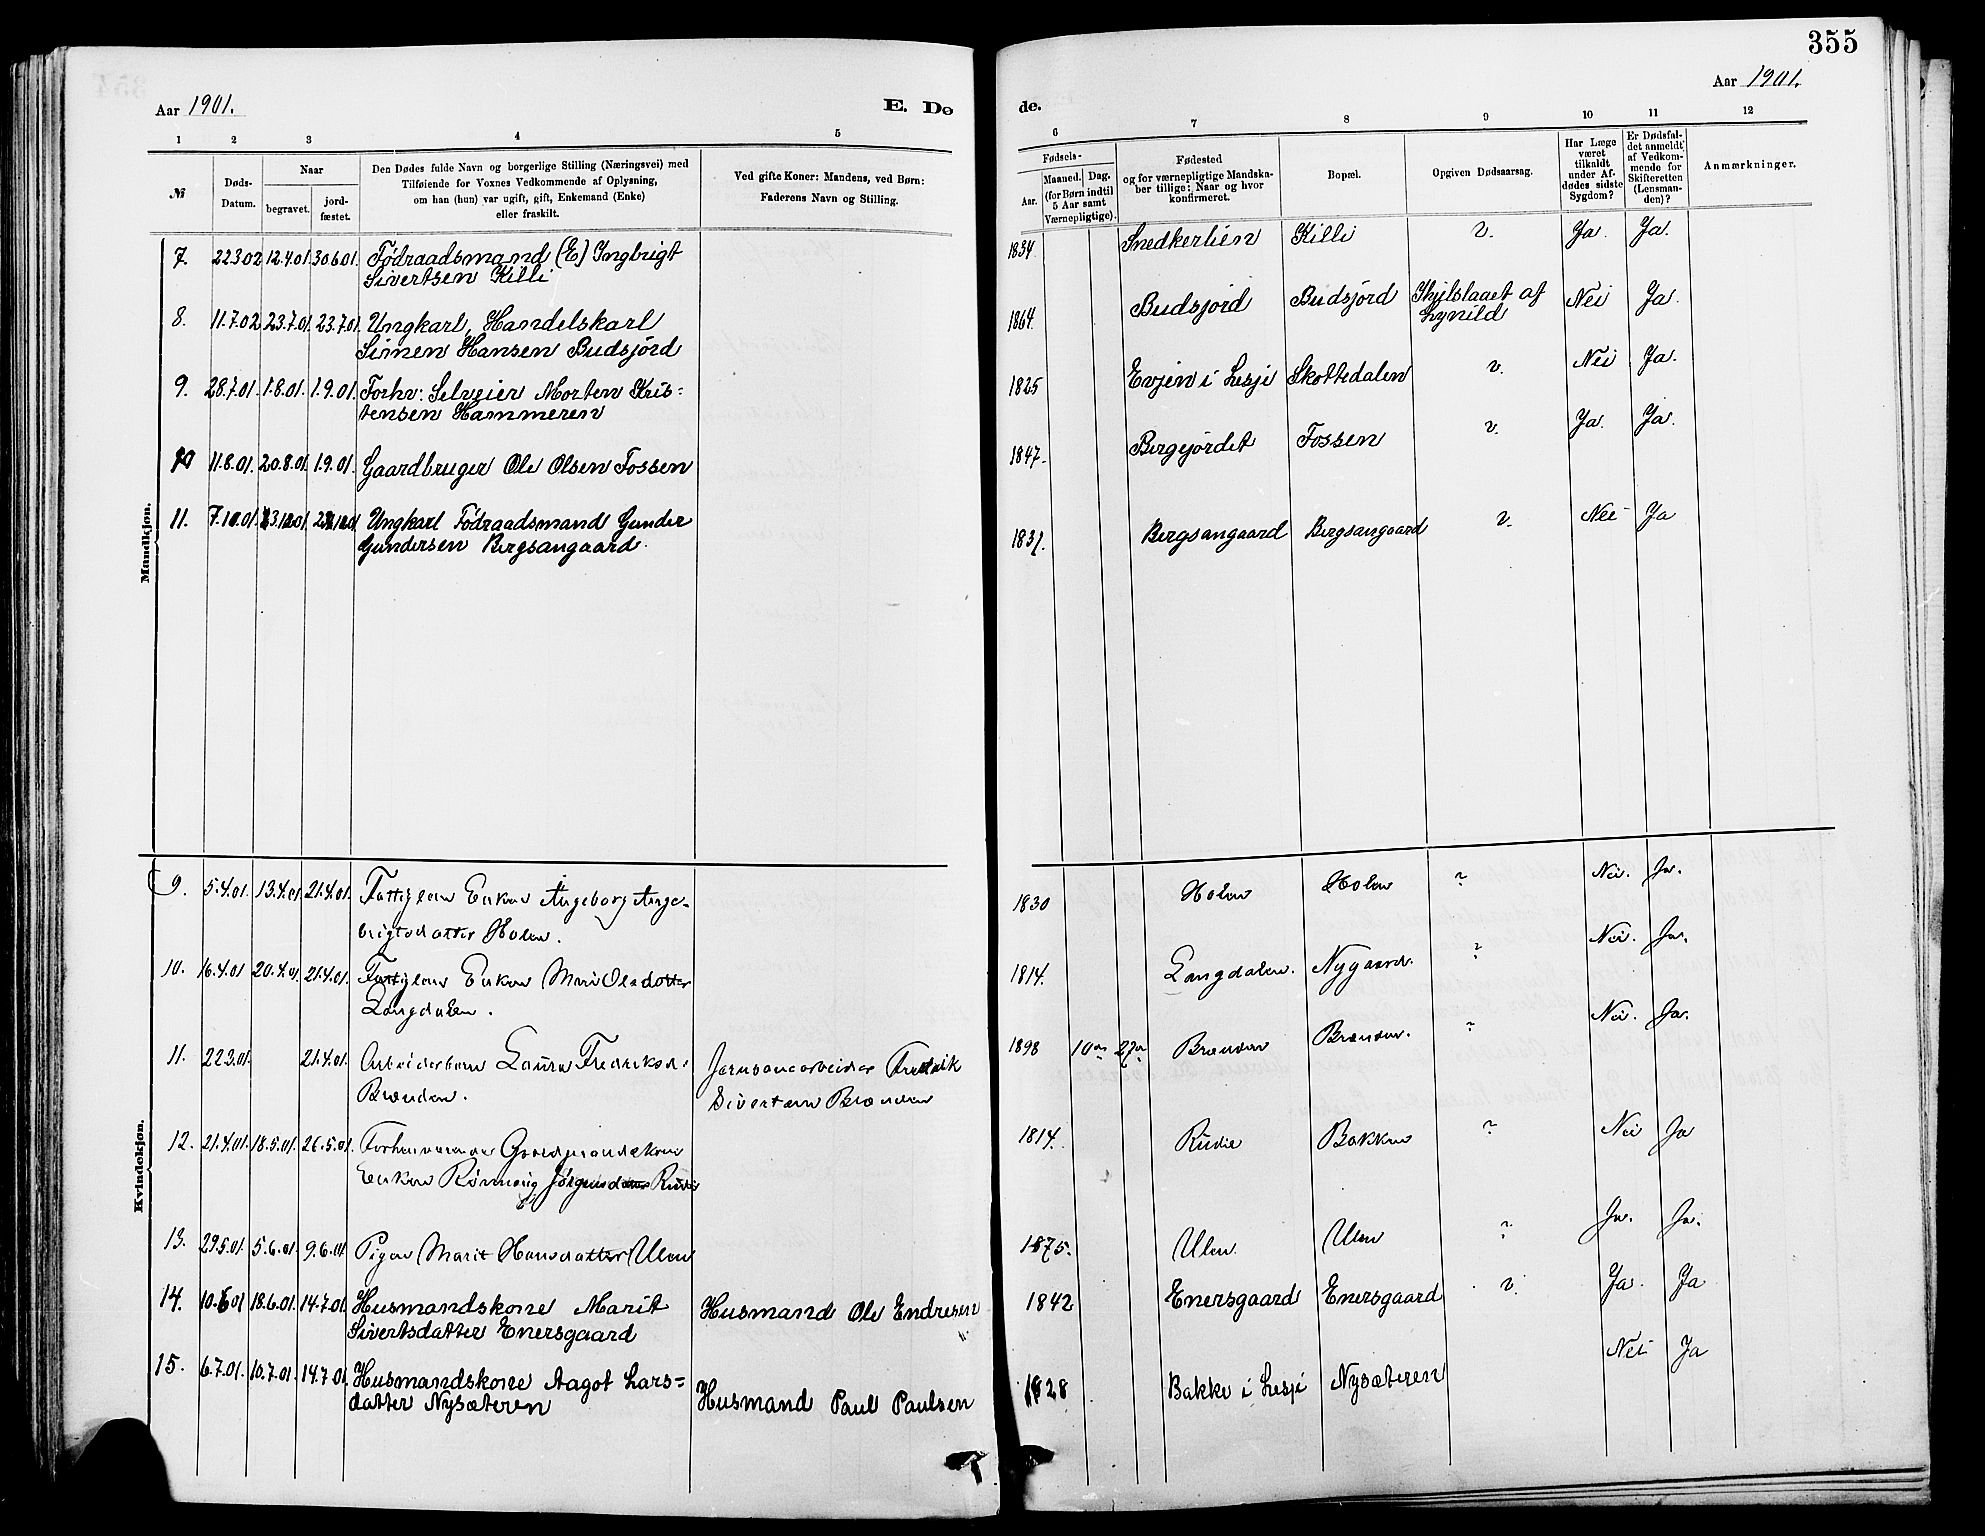 355
Aar 1901.
E. Dø
de.
Aar 1901.
1 2 3 4 5 6 7 8 9 10 11 12
№
Døds-
Datum.
Naar
begravet.
jord-
fæstet.
Den Dødes fulde Navn og borgerlige Stilling (Næringsvei) med
Tilføiende for Voxnes Vedkommende af Oplysning,
om han (hun) var ugift, gift, Enkemand (Enke)
eller fraskilt.
Ved gifte Koner: Mandens, ved Børn:
Faderens Navn og Stilling.
Fødsels-
Aar.
Maaned. Dag.
(for Børn indtil
5 Aar samt
Værnepligtige).
Fødested
og for værnepligtige Mandska-
ber tillige: Naar og hvor
konfirmeret.
Bopæl.
Opgiven Dødsaarsag.
Har Læge
været
tilkaldt
under Af-
dødes sidste
Sygdom?
Er Dødsfal-
det anmeldt
af Vedkom-
mende for
Skifteretten
(Lensman-
den)?
Anmærkninger.
Mandkjøn.
7. 22302 12.4.01 30601. Fødraadsmand (E) Ingbrigt 1834. Snedkerlien Killi v. Ja. Ja.
Sivertsen Killi
8. 11.7.02 23.7.01 23.7.01 Ungkarl, Handelskarl 1864. Budsjord Budsjord Ihjelslaaet af Nei Ja.
Simen Hansen Budsjord Lynild
9. 28.7.01. 1.8.01. 1.9.01. Forhv: Selveier Morten Kris= 1825 Evjen i Lesje Skottedalen v. Nei Ja.
tensen Hammeren
10 11.8.01. 20.8.01. 1.9.01. Gaardbruger Ole Olsen Fossen 1847. Bergejordet Fossen v. Ja. Ja.
11. Ungkarl Fødraadsmand Gunder 1831. Bergsangaard Bergsangaard v. Nei Ja
Gundersen Bergsangaard.
Kvindekjøn.
9. 5.4.01. 13.4.01. 21.4.01. Enke Ingeborg Inge- 1830 Holen Holen ? Nei. Ja.
brigtsdatter Holen.
10. 16.4.01 20.4.01 21.4.01. Enke Mari Olsdatter 1814. Langdalen. Nygaard. ? Nei. Ja.
Langdalen.
11. 22301. 21.4.01. Arbeiderbarn Laura Fredriksd. Fredrik 1898 10 27 Brænden Brænden. ? Nei. Ja.
Brænden. Sivertsen Brænden
12. 21.4.01. 18.5.01. 26.5.01. Forhenværende Gaardmandskone 1814. Rudie Bakken ? Nei Ja
Enke Rønnaug Jørgensdatter Rudie
13. 29.5.01. 5.6.01. 9.6.01. Pige Marit Hansdatter Ulen 1875. Ulen Ulen ? Ja. Ja.
14. 10.601 18.6.01. 14.7.01. Husmandskone Marit Husmand Ole Endresen 1842 Enersgaard Enersgaard v. Ja. Ja
Sivertsdatter Enersgaard
15. 6.7.01. 10.7.01. 14.7.01. Husmandskone Aagot Lars= Husmand Paul Paulsen 1828 Bakke i Lesje Nysæteren Nei Ja
datter Nysæteren